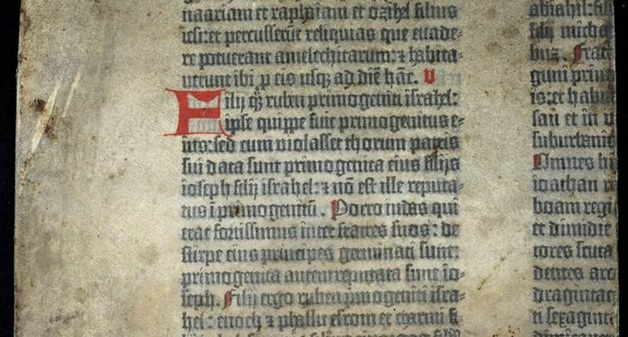 naariam et raphaiam et ozihel filius
iesi: et percusserūt reliquias que euade-
re potuerant amelechitarum: ⁊ habita-
uerunt ibi ꝓ eis usqꝫ ad diē hāc. V
Filij qꝗ ruben primogeniti israhel:
ipse quippe fuit primogenitus e-
ius: sed cum violasset thorum patris
sui data sunt primogenita eius filiis
ioseph filij israhel: ⁊ nō est ille reputa-
tus ī primogenitū. Porro iudas qui
erat fortissimus inter fratres suos: de
stirpe eius principes germinati sunt:
primogenita autem reputata sunt io-
seph. Filij ergo ruben primogeniti isra-
hel: enoch ⁊ phallu esrom et charmi
abiahil: fili
filij micha
buz. Fratr
guni prin
is: et habi
san et in
suburbanis
Omnes hi
ioathan r
boam regi
et dimidie
tores scuta
dentes arc
draginta
ti sexagint